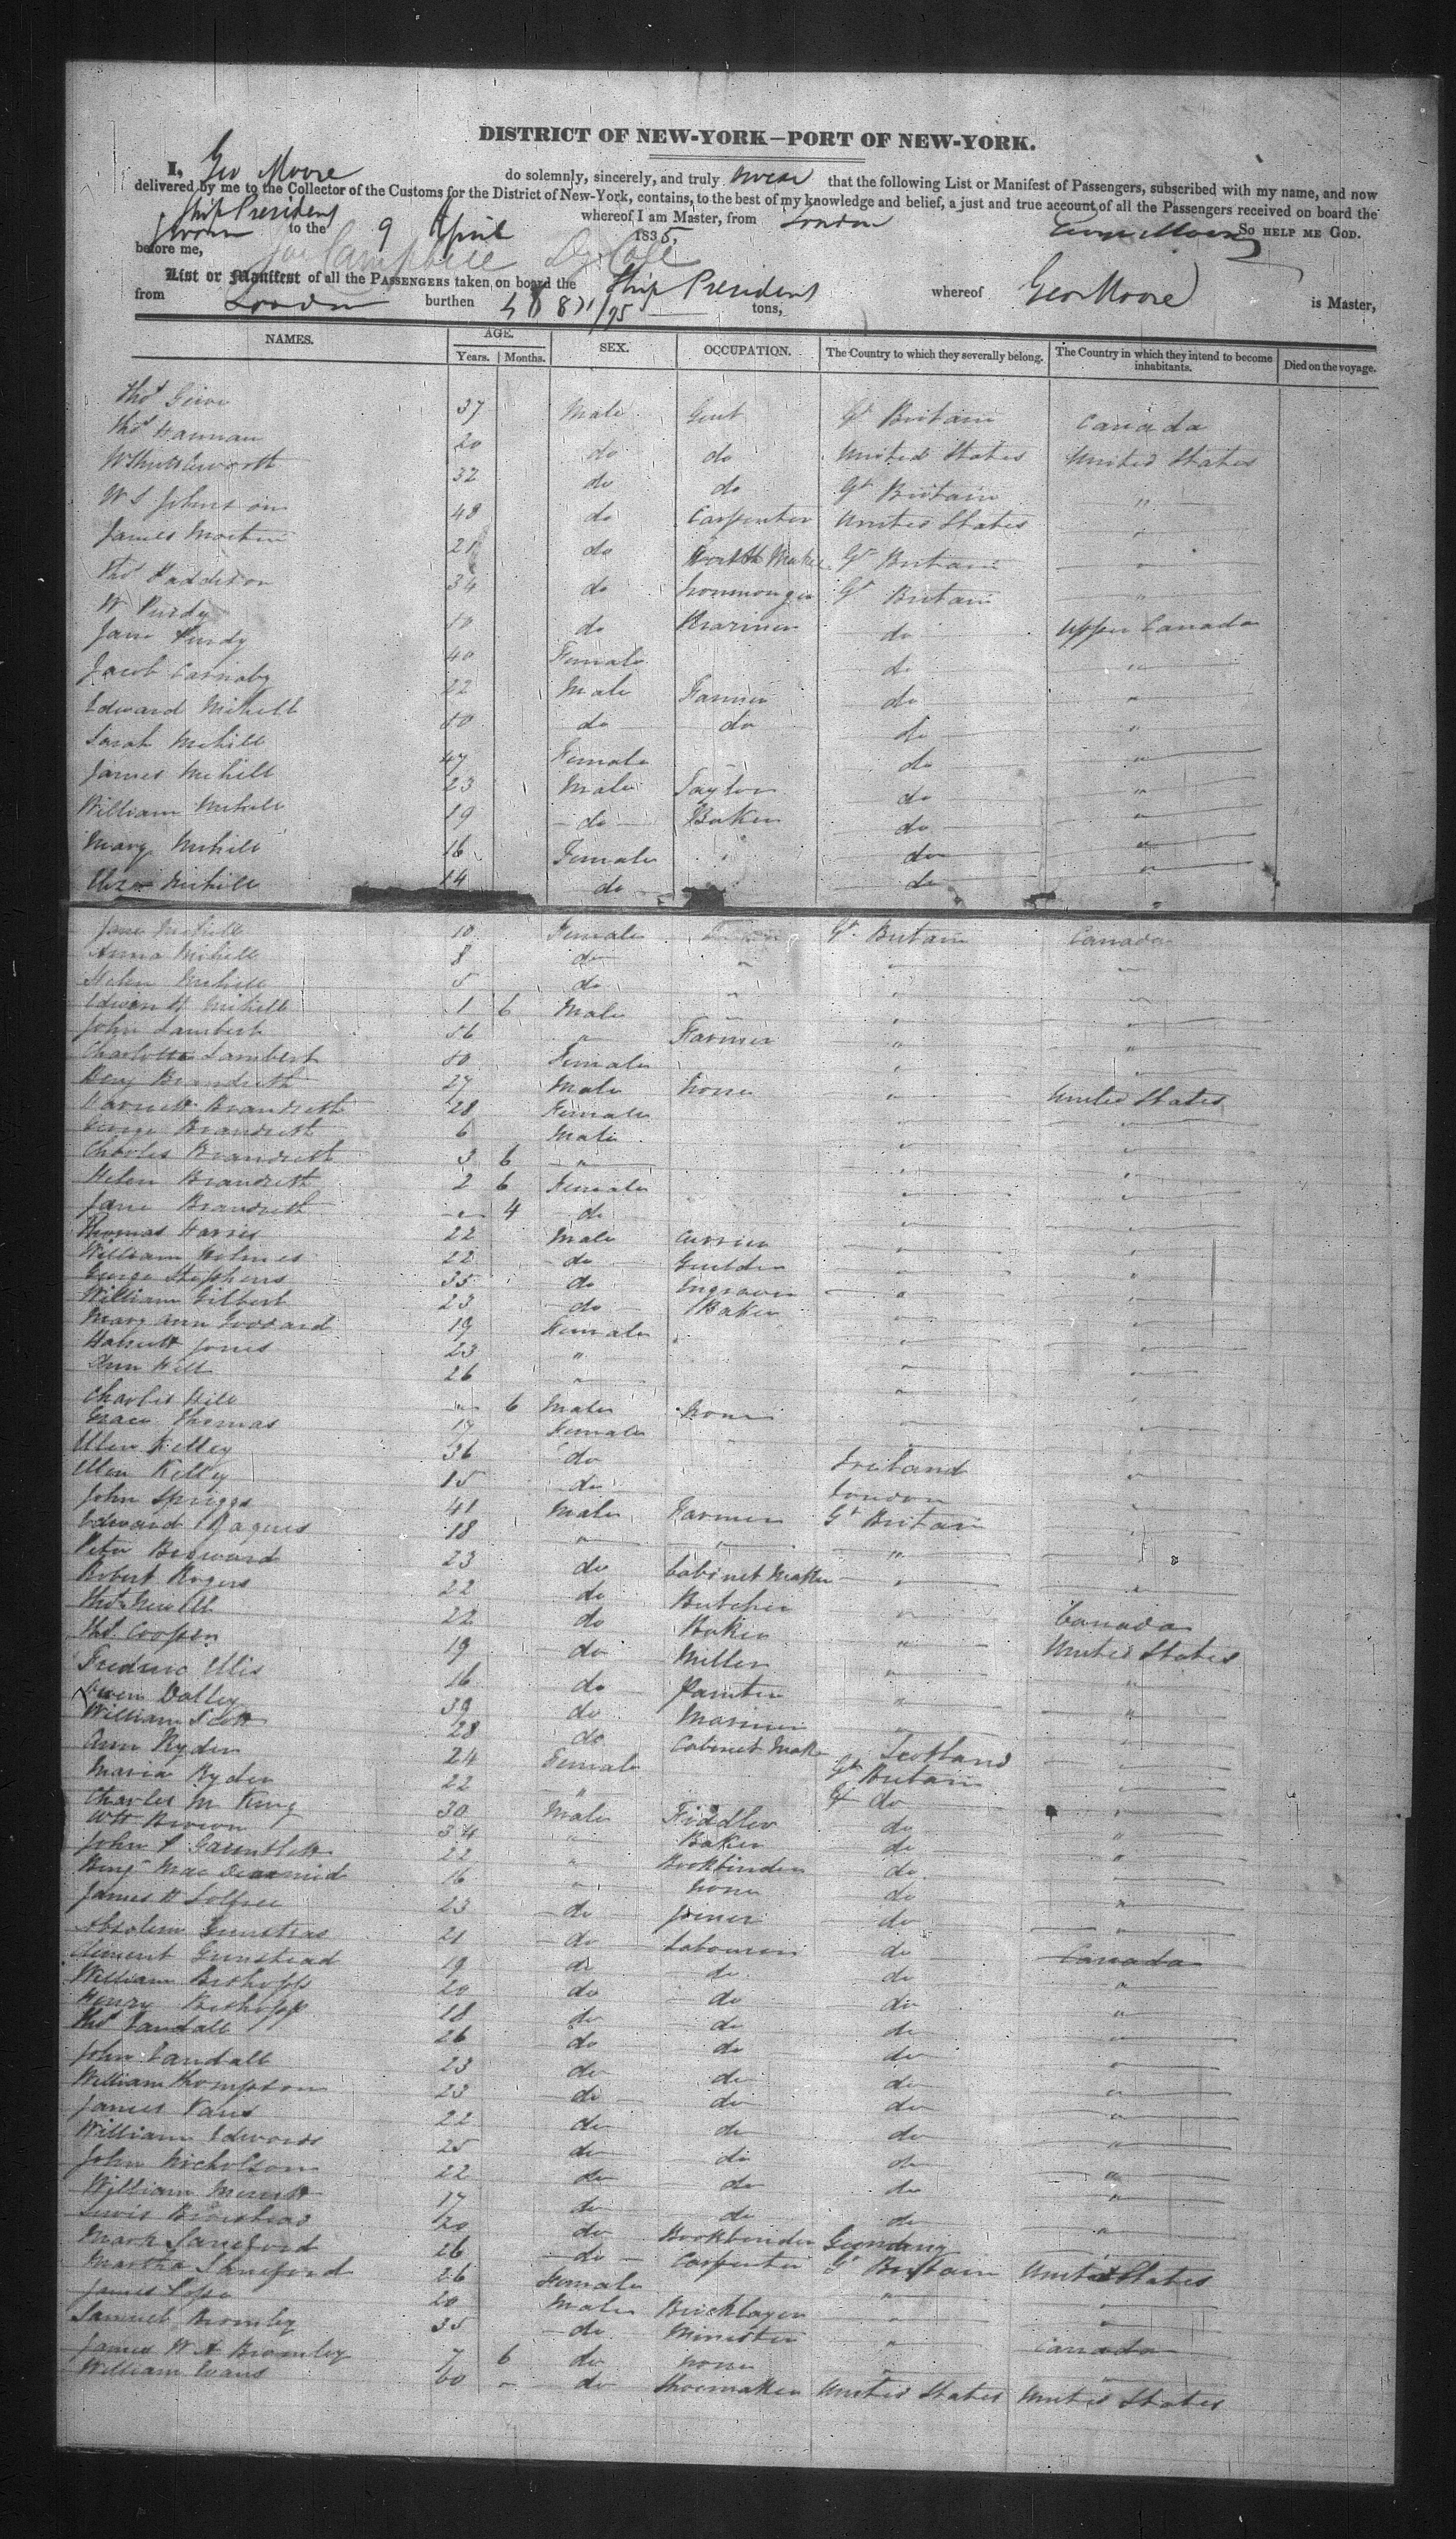 DISTRICT OF NEW-YORK—PORT OF NEW-YORK.
I, Geo Moore do solemnly, sincerely, and truly swear that the following List or Manifest of Passengers, subscribed with my name, and now
delivered by me to the Collector of the Customs for the District of New-York, contains, to the best of my knowledge and belief, a just and true account of all the Passengers received on board the
Ship President whereof I am Master, from London
Sworn to the 9 April 1835, So HELP ME GOD.
before me, Campbell Dy Coll
List or Manifest of all the PASSENGERS taken on board the Ship President whereof Geo Moore is Master,
from London burthen tons,
NAMES. AGE. Years. Months. SEX. OCCUPATION. The Country to which they severally belong. The Country in which they intend to become inhabitants. Died on the voyage.
Thos 37 Male Gent Gt Britain Canada
Thos Hannan 20 do do United States United States
W Shuttleworth 32 do do Gt Britain "
W S Johnson 48 do Carpenter United States "
James 21 do Gt Britain "
Thos Paddison 34 do Ironmonger Gt Britain "
W Purdy 50 do Mariner do Upper Canada
Jane Purdy 40 Female do "
Jacob Carnaby 22 Male Farmer do "
Edward Mihill 50 do do do "
Sarah Mihill 47 Female do "
James Mihill 23 Male Taylor do "
William Mihill 19 do Baker do "
Mary Mihill 16 Female do "
Eliza Mihill 14 do do "
Jane Mihill 10 Female Gt Britain Canada
Anna Mihill 8 do " " "
Helen Mihill 5 do " " "
Edwin Mihill 1 6 Male " "
John Lambert 56 " Farmer " "
Charlotte Lambert 50 Female " "
Benj Brandreth 27 Male none " United States
Harriett Brandreth 28 Female " "
George Brandreth 6 Male " "
Charles Brandreth 3 6 " " "
Helen Brandreth 2 6 Female " "
Jane Brandreth " 4 do " "
Thomas Harris 22 Male Currier " "
William Holmes 22 do " "
George Stephens 35 do Engraver " "
William Gilbert 23 do Baker " "
Mary Ann Goddard 19 Female "
Harriett Jones 23 " " "
Ann Hill 26 " " "
Charles Hill " 6 Male none " "
Grace Thomas 17 Female " "
Ellen Kelley 36 do Ireland "
Ellen Kelly 15 do London "
John Spriggs 41 Male Farmer Gt Britain "
Edward Jaques 18 " " " "
Peter 23 do Cabinet Maker " "
Robert Rogers 22 do Butcher " Canada
Thos 22 do Baker " United States
Thos Cooper 19 do Miller " "
Frederic Ellis 16 do Painter " "
Owen Dalley 39 do Mariner " "
William Scott 28 do Cabinet Maker Scotland "
Ann Ryder 24 Female Gt Britain "
Maria Ryder 22 " do "
Charles M King 30 Male Fiddler do "
Wm Brown 34 " Baker do "
John Gauntlett 22 " Bookbinder do "
Benj Mac Dearmid 16 " none do "
James W 23 do Joiner do "
Absolem 21 do Labourer do Canada
Gunstead 19 do do do "
William Bishopp 20 do do do "
Henry Bishopp 18 do do do "
Thos 26 do do do "
John 23 do do do "
William Thompson 23 do do do "
James 22 do do do "
William Edwards 25 do do do "
John Nicholson 22 do do do "
William 17 do do do "
Lewis 20 do Bookbinder Germany "
Mark 26 do Carpenter Gt Britain United States
Martha 26 Female " "
James 20 Male Bricklayer " "
Samuel Bromley 35 do Minister " Canada
James W A Bromley 7 6 do none " "
William Evans 60 " do Shoemaker United States United States